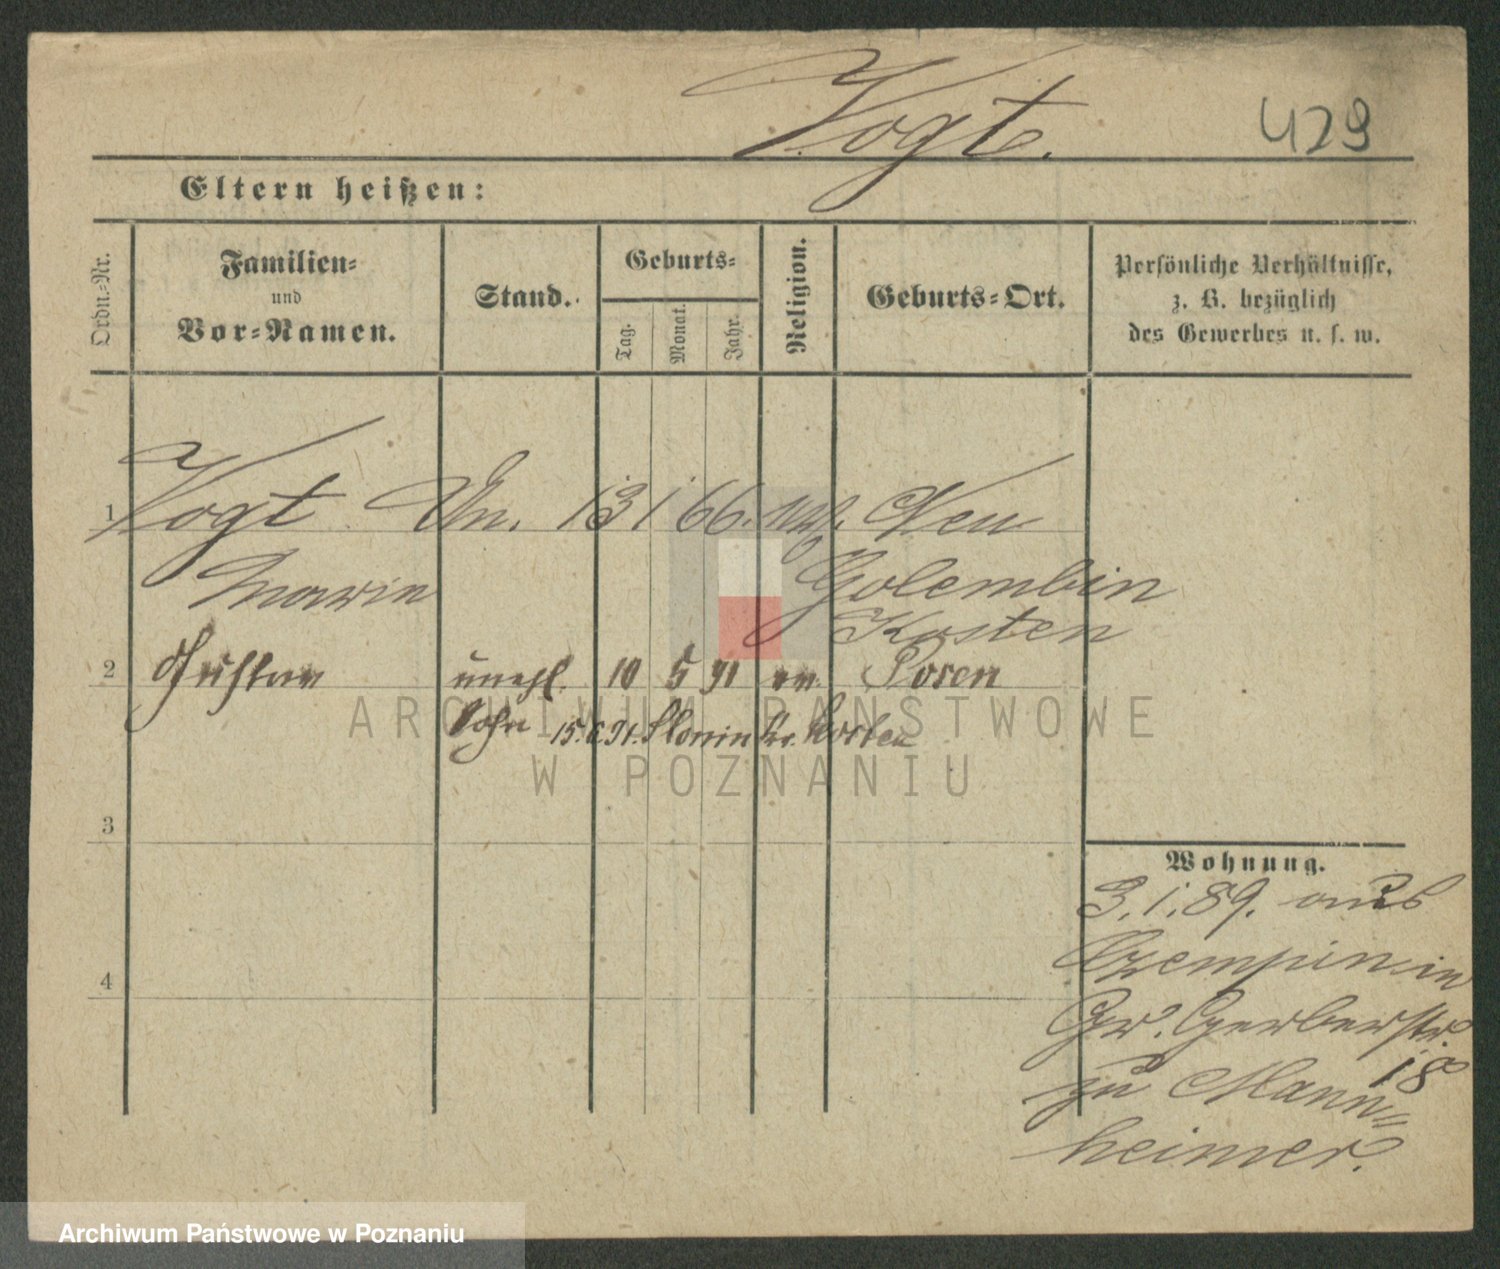 Vogt.
429
Eltern heißen:
Ordn.-Nr.
Familien-
und
Vor-Namen.
Stand.
Geburts-
Tag.
Monat.
Jahr.
Religion.
Geburts-Ort.
Persönliche Verhältnisse,
z. B. bezüglich
des Gewerbes u. s. w.
1 Vogt Un. 13 1 66. Neu
Marie Golembin
Kosten
2 Gustav unehl. 10 5 91 ev. Posen
Sohn 15.6.91. Slonin Kr. Kosten
3
4
Wohnung.
3.1.89. aus
Czempin in
Gr. Gerberstr.
18
zu Mann=
heimer.
ARCHIWUM PAŃSTWOWE
W POZNANIU
Archiwum Państwowe w Poznaniu